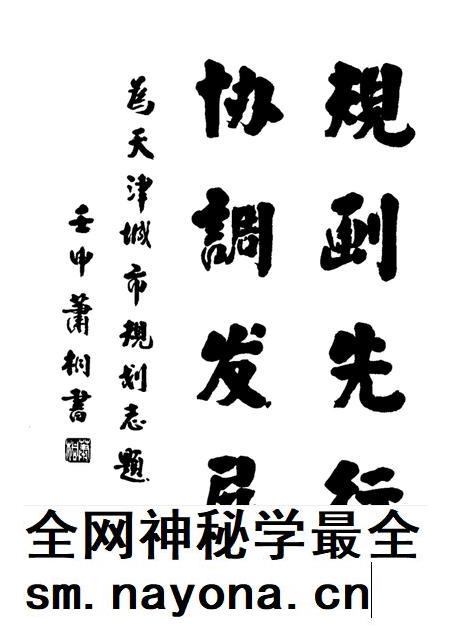 規劃先行
协調发展
為天津城市規划志題
壬申蕭桐書
全网神秘学最全
sm.nayona.cn